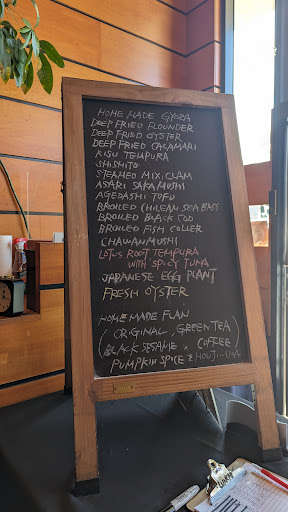 HOME MADE GYOZA
DEEP FRIED FLOUNDER
DEEP FRIED OYSTER
DEEP FRIED CALAMARI
KISU TEMPURA
SHISHITO
STEAMED MIX. CLAM
ASARI SAKAMUSHI
AGEDASHI TOFU
BROILED CHILEAN SEA BASS
BROILED BLACK COD
BROILED FISH COLLER
CHAWANMUSHI
LOTUS ROOT TEMPURA
WITH SPICY TUNA
JAPANESE EGG PLANT
FRESH OYSTER
HOMEMADE FLAN
(ORIGINAL, GREEN TEA)
(BLACK SESAME, COFFEE
PUMPKIN SPICE & HOUJI-CHA)